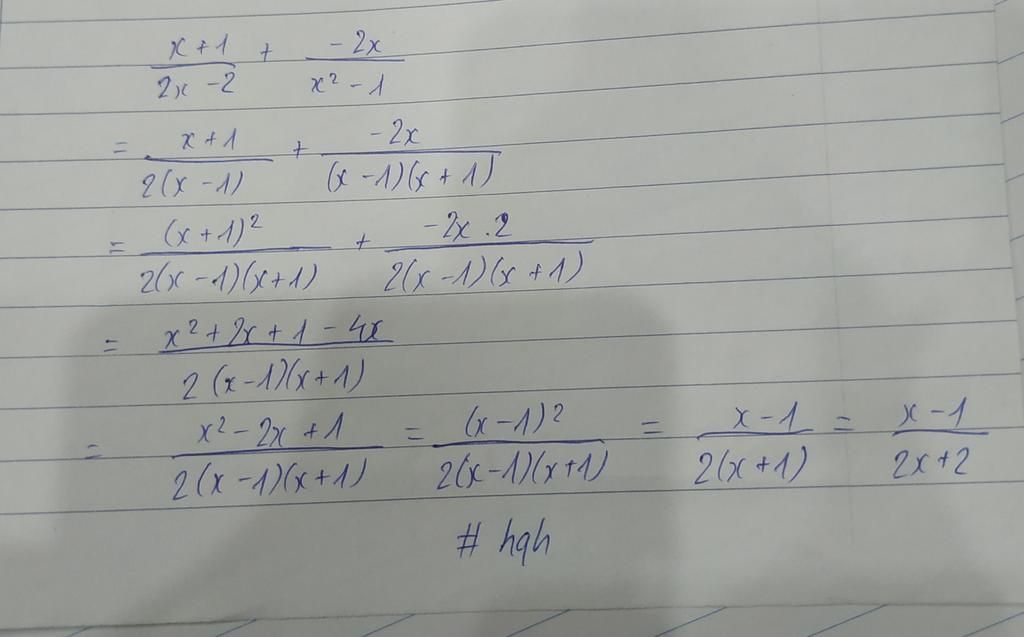 \frac{x+1}{2x-2} + \frac{-2x}{x^2-1}
= \frac{x+1}{2(x-1)} + \frac{-2x}{(x-1)(x+1)}
= \frac{(x+1)^2}{2(x-1)(x+1)} + \frac{-2x.2}{2(x-1)(x+1)}
= \frac{x^2+2x+1-4x}{2(x-1)(x+1)}
= \frac{x^2-2x+1}{2(x-1)(x+1)} = \frac{(x-1)^2}{2(x-1)(x+1)} = \frac{x-1}{2(x+1)} = \frac{x-1}{2x+2}
# hqh